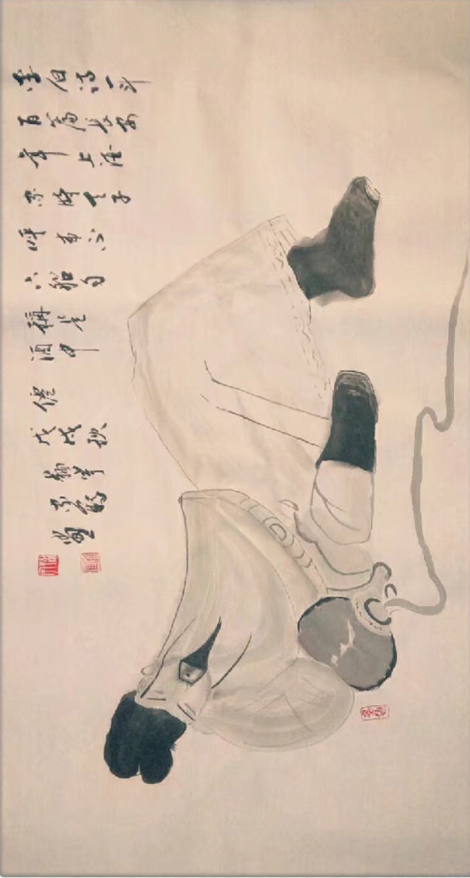 李白詩一斗
百篇長安
市上酒
家眠天子
呼來不
上船自
稱臣是
酒中
僊
戊戌秋